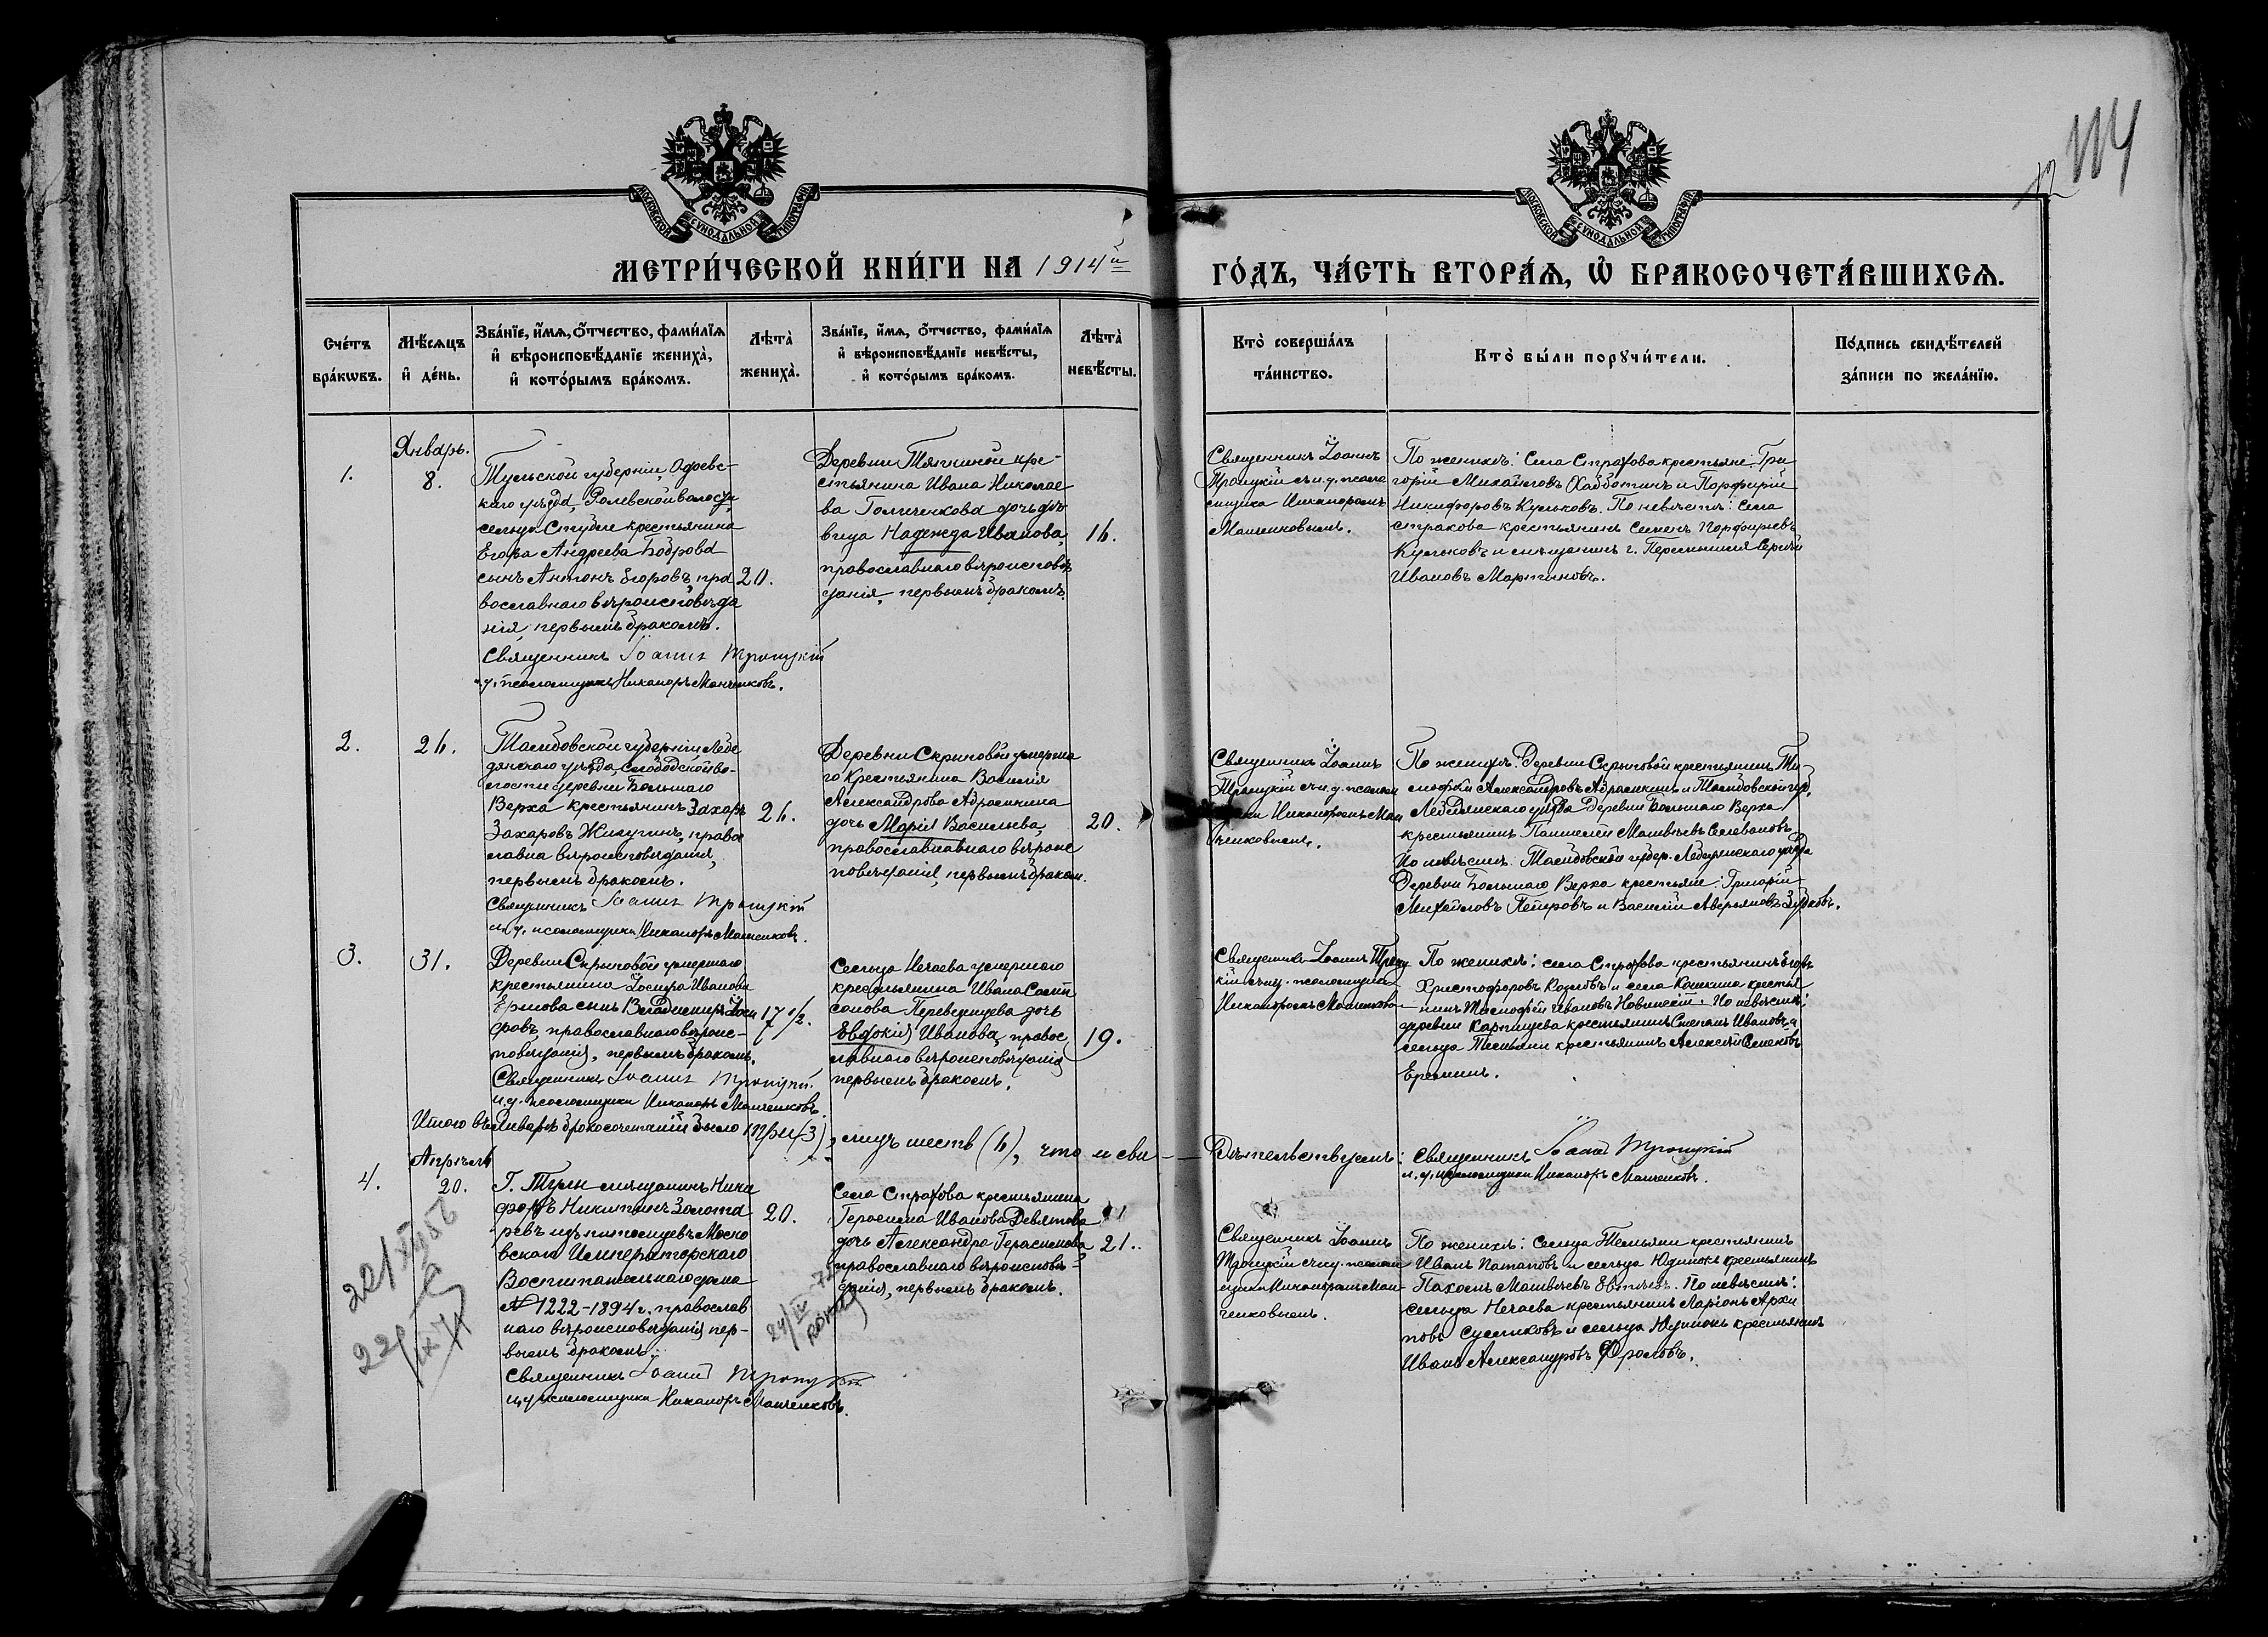 114
12
МОСКОВСКОЙ СѴНОДАЛЬНОЙ ТИПОГРАФІИ
МОСКОВСКОЙ СѴНОДАЛЬНОЙ ТИПОГРАФІИ
МЕТРИ́ЧЕСКОЙ КНИ́ГИ НА 1914й
ГО́ДЪ, ЧА́СТЬ ВТОРА́Ѧ, Ѡ҆ БРАКОСОЧЕТА́ВШИХСѦ.
Сче́тъ
бра́кѡвъ.
Мѣ́сѧцъ
и҆ де́нь.
Зва́нїе, и҆́мѧ, ѻ҆́тчество, фами́лїѧ
и҆ вѣроисповѣ́данїе жениха̀,
и҆ кото́рымъ бра́комъ.
Лѣта̀
жениха̀.
Зва́нїе, и҆́мѧ, ѻ҆́тчество, фами́лїѧ
и҆ вѣроисповѣ́данїе невѣ́сты,
и҆ кото́рымъ бра́комъ.
Лѣта̀
невѣ́сты.
Кто̀ соверша́лъ
та́инство.
Кто̀ бы́ли порꙋчи́тели.
По́дпись свидѣ́телей
за́писи по жела́нїю.
1.
Январь.
8.
Тульской губерніи, Одоевс-
каго уѣзда, волости,
сельца Студене крестьянина
Егора Андреева Боброва
сынъ Антонъ Егоровъ, пра
вославнаго вѣроисповѣда
нія, первымъ бракомъ.
Священникъ Іоаннъ Троицкій
и. д. псаломщика Никаноръ Манченковъ.
20.
Деревни кре-
стьянина Ивана Николае
ва дочь дѣ
вица Надежда Иванова,
православнаго вѣроисповѣ
данія, первымъ бракомъ.
16.
Священникъ Іоаннъ
Троицкій съ и. д. псало
мщика Никаноромъ
Манченковымъ.
По женихѣ: Села Страхова крестьяне: Гри
горій Михайловъ и Порфирій
Никифоровъ Кульковъ. По невѣстѣ: Села
Страхова крестьянинъ Семенъ Порфирьевъ
Кульковъ и мѣщанинъ г. Перемышля Сергѣй
Ивановъ Мартыновъ.
2.
26.
Тамбовской губерніи Лебе
дянскаго уѣзда, Слободской во-
лости деревни Большаго
Верха крестьянинъ Захаръ
Захаровъ Жигулинъ, право
славна вѣроисповѣданія,
первымъ бракомъ.
Священникъ Іоаннъ Троицкій
и. д. псаломщика Никаноръ Манченковъ.
26.
Деревни Скрыповой умерша
го крестьянина Василія
Александрова Абрашкина
дочь Марія Васильева,
православнавнаго вѣроис
повѣданія, первымъ бракомъ.
20.
Священникъ Іоаннъ
Троицкій съ и. д. псалом
щика Никаноромъ Ман
ченковымъ.
По женихѣ: Деревни Скрыповой крестьянинъ Ти
мофей Александровъ Абрашкинъ и Тамбовской губ.
Лебедянскаго уѣзда Деревни Большаго Верха
крестьянинъ Пантелей Матвѣевъ Селевановъ
По невѣстѣ: Тамбовской губер. Лебедянскаго уѣзда
Деревни Большаго Верха крестьяне: Григорій
Михайловъ Петровъ и Василій Аверьяновъ Зубковъ.
3.
31.
Деревни Скрыповой умершаго
крестьянина Іосифа Иванова
Ермова сынъ Владимиръ Іоси
фовъ, православнаго вѣроис-
повѣданія, первымъ бракомъ.
Священникъ Іоаннъ Троицкій
и. д. псаломщика Никаноръ Манченковъ.
17 1/2.
Сельца Нечаева умершаго
крестьянина Ивана Самп
сонова Переведенцева дочь
Евдокія Иванова, правос
лавнаго вѣроисповѣданія
первымъ бракомъ.
19.
Священникъ Іоаннъ Троиц
кій съ и. д. псаломщика
Никаноромъ Манченково
По женихѣ: села Страхова крестьянинъ Егоръ
Христофоровъ Козловъ и села Кошкина крестья
нинъ Тимофей Ивановъ Новинскій. По невѣстѣ:
деревни Карташева крестьянинъ Степанъ Ивановъ и
сельца Темьяни крестьянинъ Алексѣй Семеновъ
Ереминъ.
Итого въ Январѣ бракосочетаній было три (3), лицъ шесть (6), что и сви-
дѣтельствуемъ: Священникъ Іоаннъ Троицкій
и. д. псаломщика Никаноръ Манченковъ.
4.
Апрѣль
20.
Г. Тулы мѣщанинъ Ники
форъ Никитинъ Золота
ревъ изъ питомцевъ Моско
вскаго Императорскаго
Воспитательнаго дома
№ 1222-1894 г. православ
наго вѣроисповѣданія пер-
вымъ бракомъ.
Священникъ Іоаннъ Троицкій
и. д. псаломщика Никаноръ Манченковъ.
20.
Села Страхова крестьянина
Герасима Иванова Девятова
дочь Александра Герасимова
православнаго вѣроисповѣ-
данія, первымъ бракомъ.
21.
Священникъ Іоаннъ
Троицкій съ и. д. псалом
щика Никаноромъ Ман
ченковымъ.
По женихѣ: Сельца Темьяни крестьянинъ
Иванъ Потаповъ и сельца Юдинокъ крестьянинъ
Пахомъ Матвѣевъ Евтѣевъ. По невѣстѣ:
сельца Нечаева крестьянинъ Ларіонъ Архи
повъ Сусликовъ и сельца Юдинокъ крестьянинъ
Иванъ Александровъ Фроловъ.